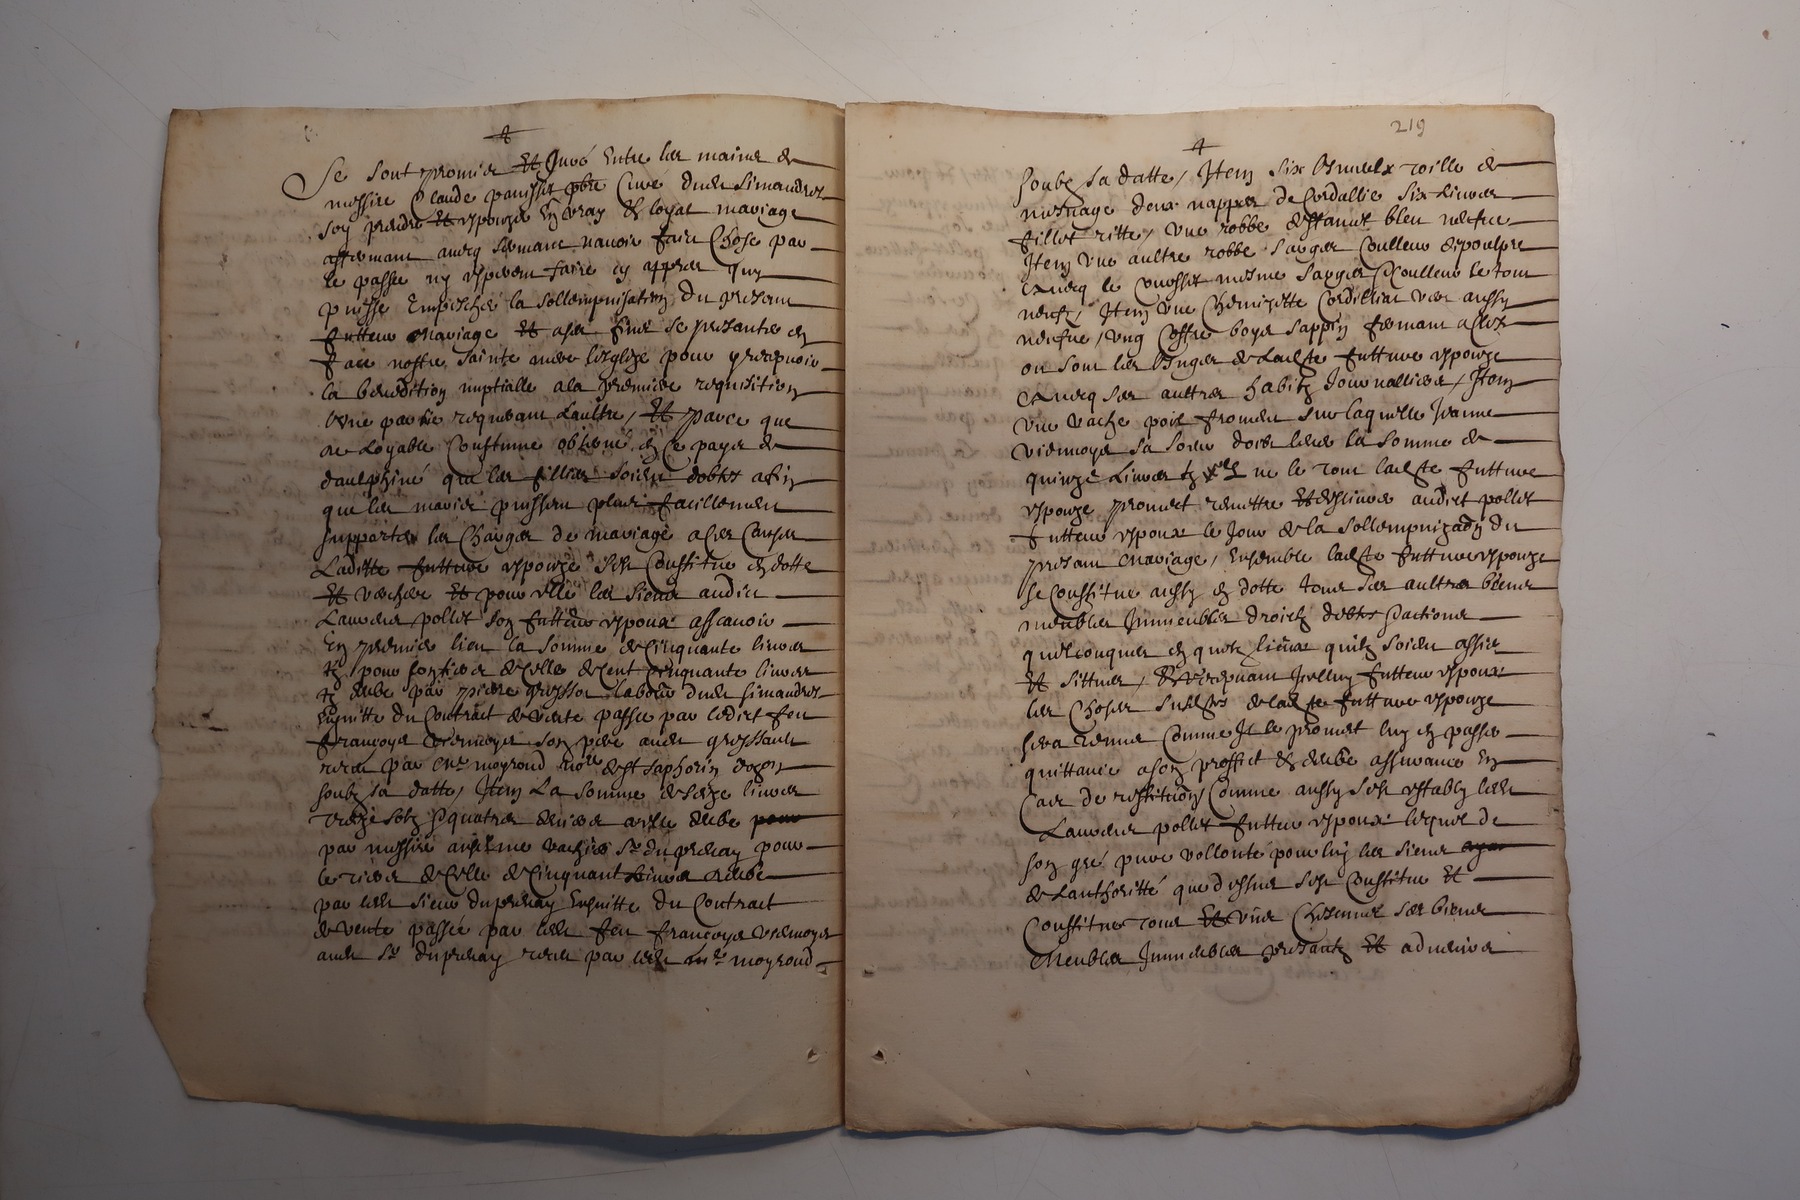 Se sont promis et Juré Entre les mains de
messire Claude panisset pbre Curé dudit simandres
soy prendre et espouzer En vray et loyal mariage
affirmant avecq serment navoir faict Chose par
le passé ny esperent faire cy appres quy
puisse Empescher la sollempnisation du present
futteur mariage et a ses fins se presanter en
face nostre sainte mere leglize pour y recepvoir
la benediction nuptialle a la premiere requisition
Une partie requerant Laultre, Et parce que
de Loyable Coustume observé en Ce pays de
daulphiné que les filles soient dottes afin
que les maris puissent plus facillement
supporter les Charges de mariage a Ces Causes
Laditte future espouze sest Constitue en dotte
et verchere et pour elle les siens audict
Laurens pollet son futteur espoux assavoir
En premier lieu la somme de Cinquante livres
tz pour le tiers de Celle de Cent Cinquante livres
tz deube par pierre grossat labeur dudit simandres
Ensuitte du Contract de vente passée par ledict feu
françoys viremoyer son pere audit grossat
receu par me moyroud nore de st saphorin dozon
soubz sa datte, Item La somme de seize livres
treize solz quatre deniers aussy deube
par messire anthelme vachier sr du perray pour
le tiers de Celle de Cinquant livres deube
par ledit sieur du perray Ensuitte du Contract
de vente passée par ledit feu françoys viremoyer
audit sr du perray receu par ledit me moyroud
219
soubz sa datte, Item six linceulx toille de
mesnage deux nappes de Cordallie six livres
fillet ritte, Une robbe destamet bleu neufve
Item Une aultre robbe sarges Coulleur de poulpre
avecq le Corsset mesme sarges Coulleur le tout
neufz, Item Une Chemizette Cordilliat vert aussy
neufve, Ung Coffre boys sappin fermant a Clef
ou sont les linges de Laditte futture espouze
avecq ses aultres habitz Journalliers, Item
Une vache poil froment sur laquelle Jeanne
viremoyer sa soeur doibt ledit la somme de
quinze Livres tz le tout laditte futture
espouze promect remettre et deslivrer audict pollet
futteur espoux le Jour de la sollempnization du
present mariage, Ensemble laditte futture espouze
se Constitue aussy en dotte tous ses aultres biens
meubles Immeubles droictz debtes actions
quelconques en quelz lieux quilz soient assis
et sittues, Recepvant Icelluy futteur espoux
les Choses susdites de laditte futture espouze
sera tenu Comme Il le promect luy en passer
quittance a son proffict et deube assurance En
Cas de restitution Comme aussy sest estably ledit
Laurens pollet futteur espoux lequel de
son gré pure vollonté pour luy les siens
de Lauthoritté que dessus sest Constitue et
Constitue tous et Ungs Chescungs ses biens
meubles Immeubles presantz et advenir